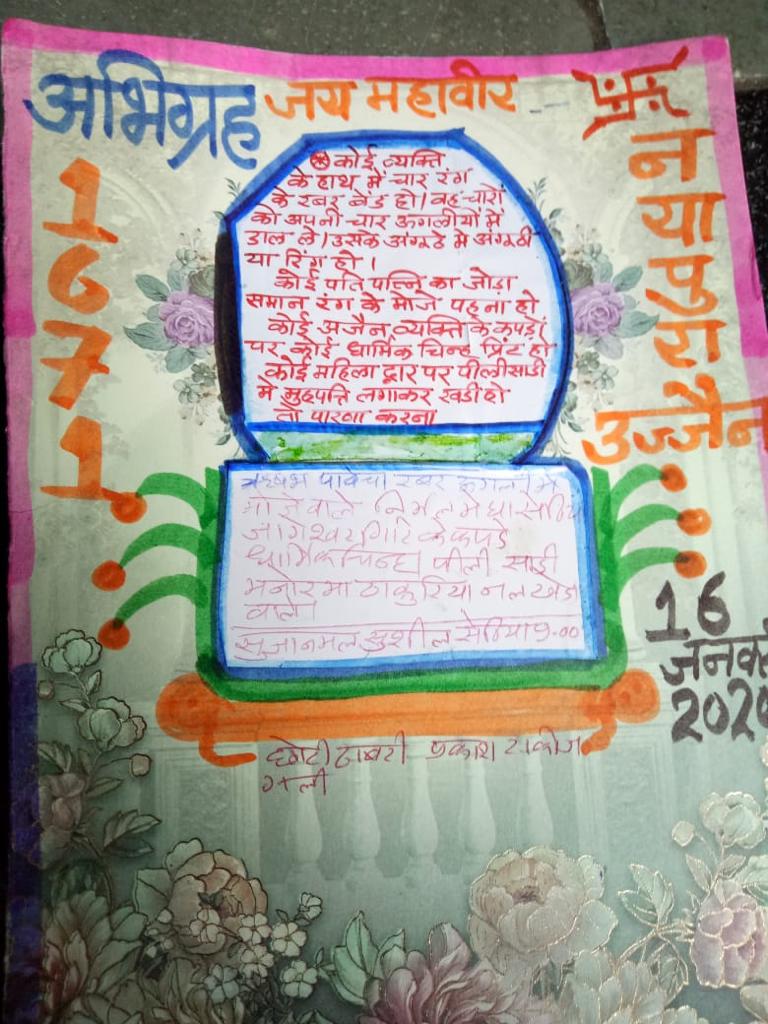 अभिग्रह जय महावीर
1671
नयापुरा
उज्जैन
कोई व्यक्ति
के हाथ में चार रंग
के रबर बेंड हो। वह चारों
को अपनी चार ऊगलीयों में
डाल ले। उसके अंगूठे मे अंगूठी
या रिंग हो।
कोई पति पत्नि का जोड़ा
समान रंग के मोजे पहना हो
कोई अजैन व्यक्ति के कपड़ों
पर कोई धार्मिक चिन्ह प्रिंट हो
कोई महिला द्वार पर पीली साडी
मे मुहपत्ति लगाकर खडी हो
तो पारणा करना
रबर
मोजे वाले निर्मल मेघा सेठिया
जागेश्वर गिरि के कपड़े
धार्मिक चिन्ह। पीली साड़ी
मनोरमा ठाकुरिया नलखेड़ा
वाले।
सुजानमल सुशील सेठिया 9.00
16
जनवरी
2020
छोटी प्रकाश टाकीज
गली